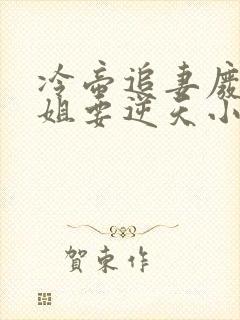 冷帝追妻廢
姐要逆天小
賀東作